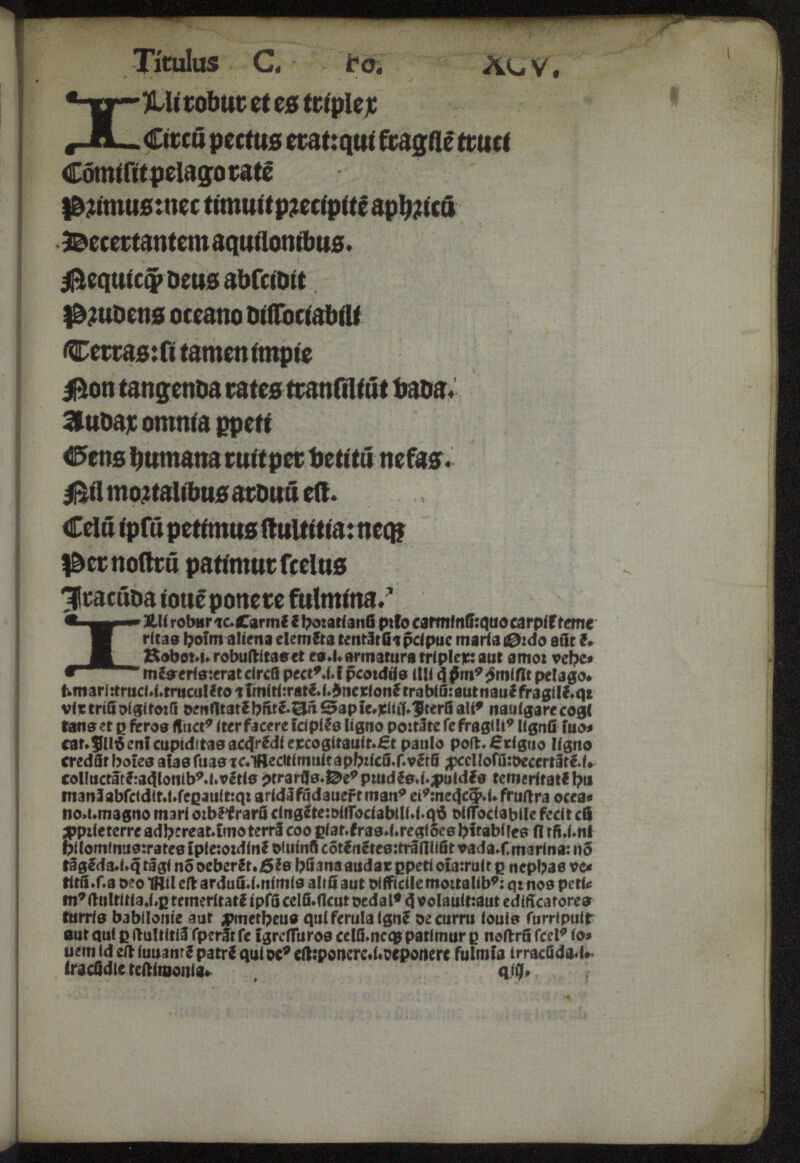 Titulus C. Fo. XCV.
ILli robur et es triplex
Circū pectus erat:qui fragilē truci
Cōmisit pelago ratē
Primus:nec timuit precipitē aphricū
Decertantem aquilonibus.
Nequicꝙ deus abscidit
Prudens oceano dissociabili
Terras:si tamen impie
Non tangenda rates transiliūt vada.
Audax omnia ꝑpeti
Gens humana ruit per vetitū nefas.
Nil mortalibus arduū est.
Celū ipsū petimus stultitia:neqꝫ
Per nostrū patimur scelus
Iracūda iouē ponere fulmina.
ILli robur ⁊c. Carmē ē horatianū prīo carminū:quo carpit teme
ritas hoīm aliena elemēta tentātiū ⁊ p̄cipue maria Ordo aūt ē.
Robor.i. robustitas et es.i. armatura triplex: aut amor vehe⸗
mēs eris:erat circū pectꝰ.i. ī p̄cordijs illi
t.mari:truci.i.truculēto ⁊ īmiti:ratē.i.ꝯnexionē trabiū:aut nauē fragilē.qr
vix triū digitorū densitatē hn̄tē.Un̄ Sapīe.xiiij.Iterū aliꝰ nauigare cogi
tans et ꝑ feros fluctꝰ iter facere īcipiēs ligno portāte se fragiliꝰ lignū īuo⸗
cat.Illḋ enī cupiditas acq̄rēdi excogitauit.Et paulo post.Exiguo ligno
credūt hoīes aīas suas ⁊c.Nec timuit aphricū.s.vētū ꝓcellosū:decertātē.i.
colluctātē:aq̄lonibꝰ.i.vētis ꝯtrarijs.Deꝰ prudēs.i.ꝓuidēs temeritatē hu
manā abscidit.i.sepauit:qr aridā fūdauerūt manꝰ eiꝰ:neq̄cꝙ.i. frustra ocea⸗
no.i.magno mari orbē terrarū cingēte:dissociabili.i.qḋ dissociabile fecit cū
ꝓprie terre adhereat.īmo terrā
hilominus:rates īpie:ordinē diuinū cōtēnētes:trāsiliūt vada.s.marina: nō
tāgēda.i.q̄ tāgi nō deberēt.Gēs hūana audax ꝑpeti oīa:ruit ꝑ nephas ve⸗
titū.s.a deo Nil est arduū.i.nimis altū aut difficile mortalibꝰ: qr nos peti⸗
mꝰ stultitia.i.ꝑ temeritatē ipsū celū.sicut dedalꝰ q̇ volauit:aut edificatores
turris babilonie aut ꝓmetheus qui ferula ignē de curru iouis surripuit
aut qui ꝑ stultitiā sperāt se īgressuros celū.neqꝫ patimur ꝑ nostrū scelꝰ io⸗
uem id est iuuantē patrē qui dēꝰ est:ponere.i.deponere fulmīa irracūda.i.
iracūdie testimonia. qiij.